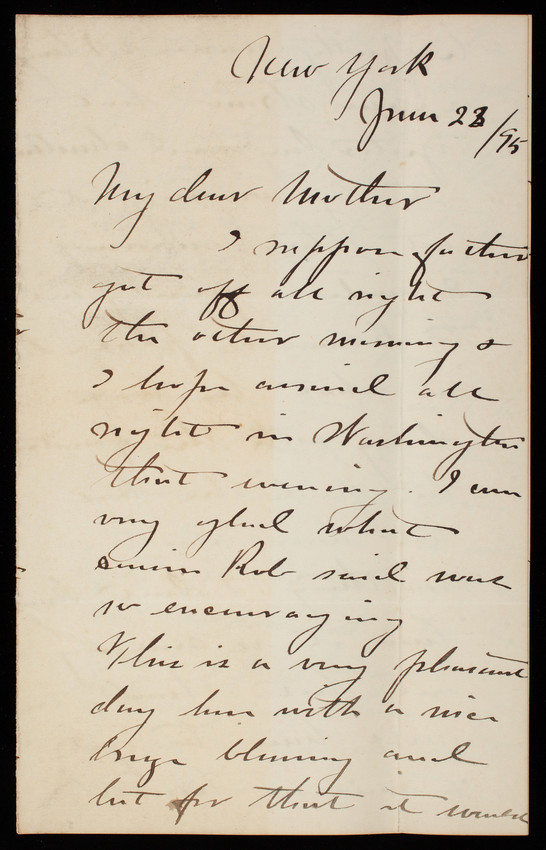 New York
June 23/95
My dear Mother
I suppose father
got off all right
the other morning &
I hope arrived all
right in Washington
that evening. I am
very glad what
cousin Rob said was
so encouraging
This is a very pleasant
day here with a nice
breeze blowing and
but for that it would